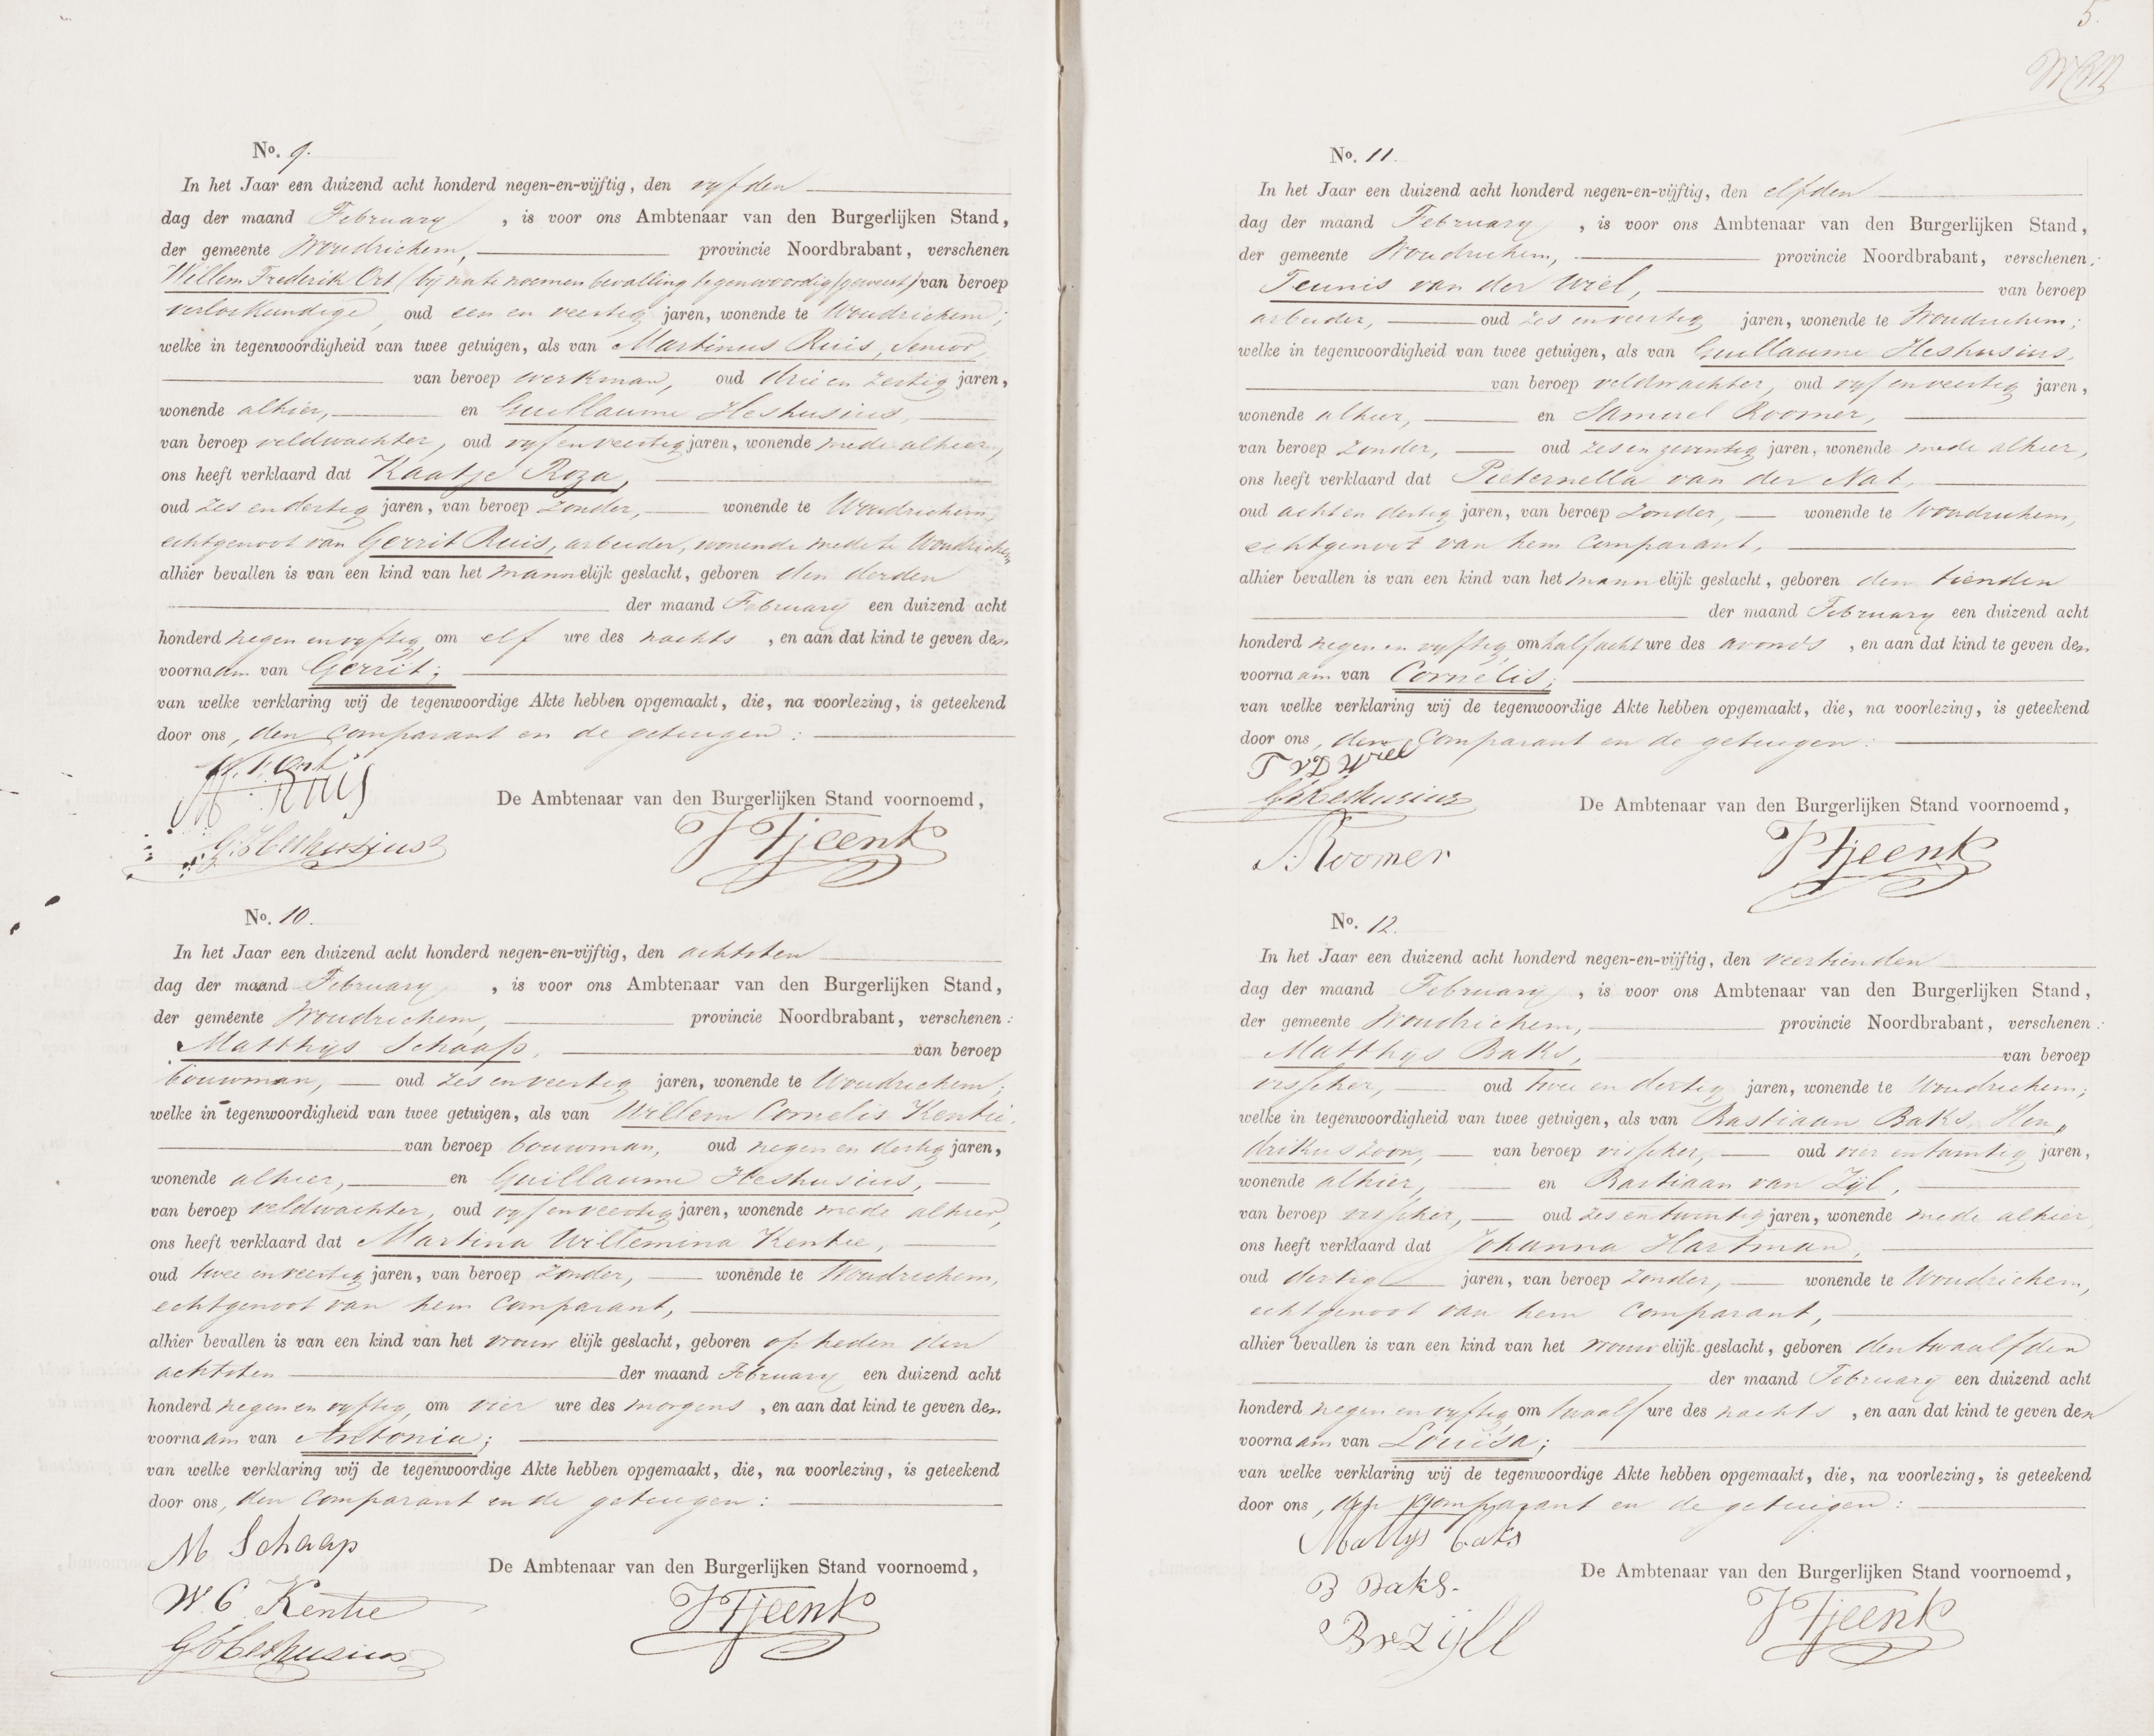 No. 9.
In het Jaar een duizend acht honderd negen-en-vijftig, den vyfden
dag der maand February, is voor ons Ambtenaar van den Burgerlijken Stand,
der gemeente Woudrichem, provincie Noordbrabant, verschenen
Willem Frederik Ort (bij na te noemen bevalling tegenwoordig geweest) van beroep
verloskundige, oud een en veertig jaren, wonende te Woudrichem;
welke in tegenwoordigheid van twee getuigen, als van Martinus Ruis, Senior,
van beroep werkman, oud drie en zestig jaren,
wonende alhier, en Guillaume Heshusius,
van beroep veldwachter, oud vyf en veertig jaren, wonende mede alhier,
ons heeft verklaard dat Kaatje Roza,
oud zes en dertig jaren, van beroep zonder, wonende te Woudrichem,
echtgenoot van Gerrit Ruis, arbeider, wonende mede te Woudrichem
alhier bevallen is van een kind van het mannelijk geslacht, geboren den derden
der maand February een duizend acht
honderd negen en vyftig om elf ure des nachts, en aan dat kind te geven den
voornaam van Gerrit;
van welke verklaring wij de tegenwoordige Akte hebben opgemaakt, die, na voorlezing, is geteekend
door ons, den comparant en de getuigen:
W. F. Ort
M. Ruis
De Ambtenaar van den Burgerlijken Stand voornoemd,
G. Heshusius
Tjeenk
No. 10.
In het Jaar een duizend acht honderd negen-en-vijftig, den achtsten
dag der maand February, is voor ons Ambtenaar van den Burgerlijken Stand,
der gemeente Woudrichem, provincie Noordbrabant, verschenen:
Matthijs Schaap, van beroep
bouwman, oud zes en veertig jaren, wonende te Woudrichem;
welke in tegenwoordigheid van twee getuigen, als van Willem Cornelis Kentie,
van beroep bouwman, oud negen en dertig jaren,
wonende alhier, en Guillaume Heshusius,
van beroep veldwachter, oud vyf en veertig jaren, wonende mede alhier,
ons heeft verklaard dat Martina Willemina Kentie,
oud twee en veertig jaren, van beroep zonder, wonende te Woudrichem,
echtgenoot van hem comparant,
alhier bevallen is van een kind van het vrouwelijk geslacht, geboren op heden den
achtsten der maand February een duizend acht
honderd negen en vyftig, om vier ure des morgens, en aan dat kind te geven den
voornaam van Antonia;
van welke verklaring wij de tegenwoordige Akte hebben opgemaakt, die, na voorlezing, is geteekend
door ons, den comparant en de getuigen:
M Schaap
De Ambtenaar van den Burgerlijken Stand voornoemd,
W C Kentie
Tjeenk
G Heshusius
5.
No. 11.
In het Jaar een duizend acht honderd negen-en-vijftig, den elfden
dag der maand February, is voor ons Ambtenaar van den Burgerlijken Stand,
der gemeente Woudrichem, provincie Noordbrabant, verschenen:
Teunis van der Wiel, van beroep
arbeider, oud zes en veertig jaren, wonende te Woudrichem;
welke in tegenwoordigheid van twee getuigen, als van Guillaume Heshusius,
van beroep veldwachter, oud vyf en veertig jaren,
wonende alhier, en Samuel Roomer,
van beroep zonder, oud zes en zeventig jaren, wonende mede alhier,
ons heeft verklaard dat Pieternella van der Nat,
oud acht en dertig jaren, van beroep zonder, wonende te Woudrichem,
echtgenoot van hem comparant,
alhier bevallen is van een kind van het mannelijk geslacht, geboren den tienden
der maand February een duizend acht
honderd negen en vyftig om half acht ure des avonds, en aan dat kind te geven den
voornaam van Cornelis;
van welke verklaring wij de tegenwoordige Akte hebben opgemaakt, die, na voorlezing, is geteekend
door ons, den Comparant en de getuigen:
T vD Wiel
G Heshusius
De Ambtenaar van den Burgerlijken Stand voornoemd,
S. Roomer
Tjeenk
No. 12.
In het Jaar een duizend acht honderd negen-en-vijftig, den veertienden
dag der maand February, is voor ons Ambtenaar van den Burgerlijken Stand,
der gemeente Woudrichem, provincie Noordbrabant, verschenen:
Matthys Baks, van beroep
visscher, oud twee en dertig jaren, wonende te Woudrichem;
welke in tegenwoordigheid van twee getuigen, als van Bastiaan Baks, Hen,
drikus zoon, van beroep visscher, oud vier en twintig jaren,
wonende alhier, en Bastiaan van Zijl,
van beroep visscher, oud zes en twintig jaren, wonende mede alhier
ons heeft verklaard dat Johanna Hartman,
oud dertig jaren, van beroep zonder, wonende te Woudrichem,
echtgenoot van hem comparant,
alhier bevallen is van een kind van het vrouwelijk geslacht, geboren den twaalfden
der maand February een duizend acht
honderd negen en vyftig om twaalf ure des nachts, en aan dat kind te geven den
voornaam van Louisa;
van welke verklaring wij de tegenwoordige Akte hebben opgemaakt, die, na voorlezing, is geteekend
door ons, den comparant en de getuigen:
Mattys baks
De Ambtenaar van den Burgerlijken Stand voornoemd,
B Baks.
Tjeenk
B v Zijll